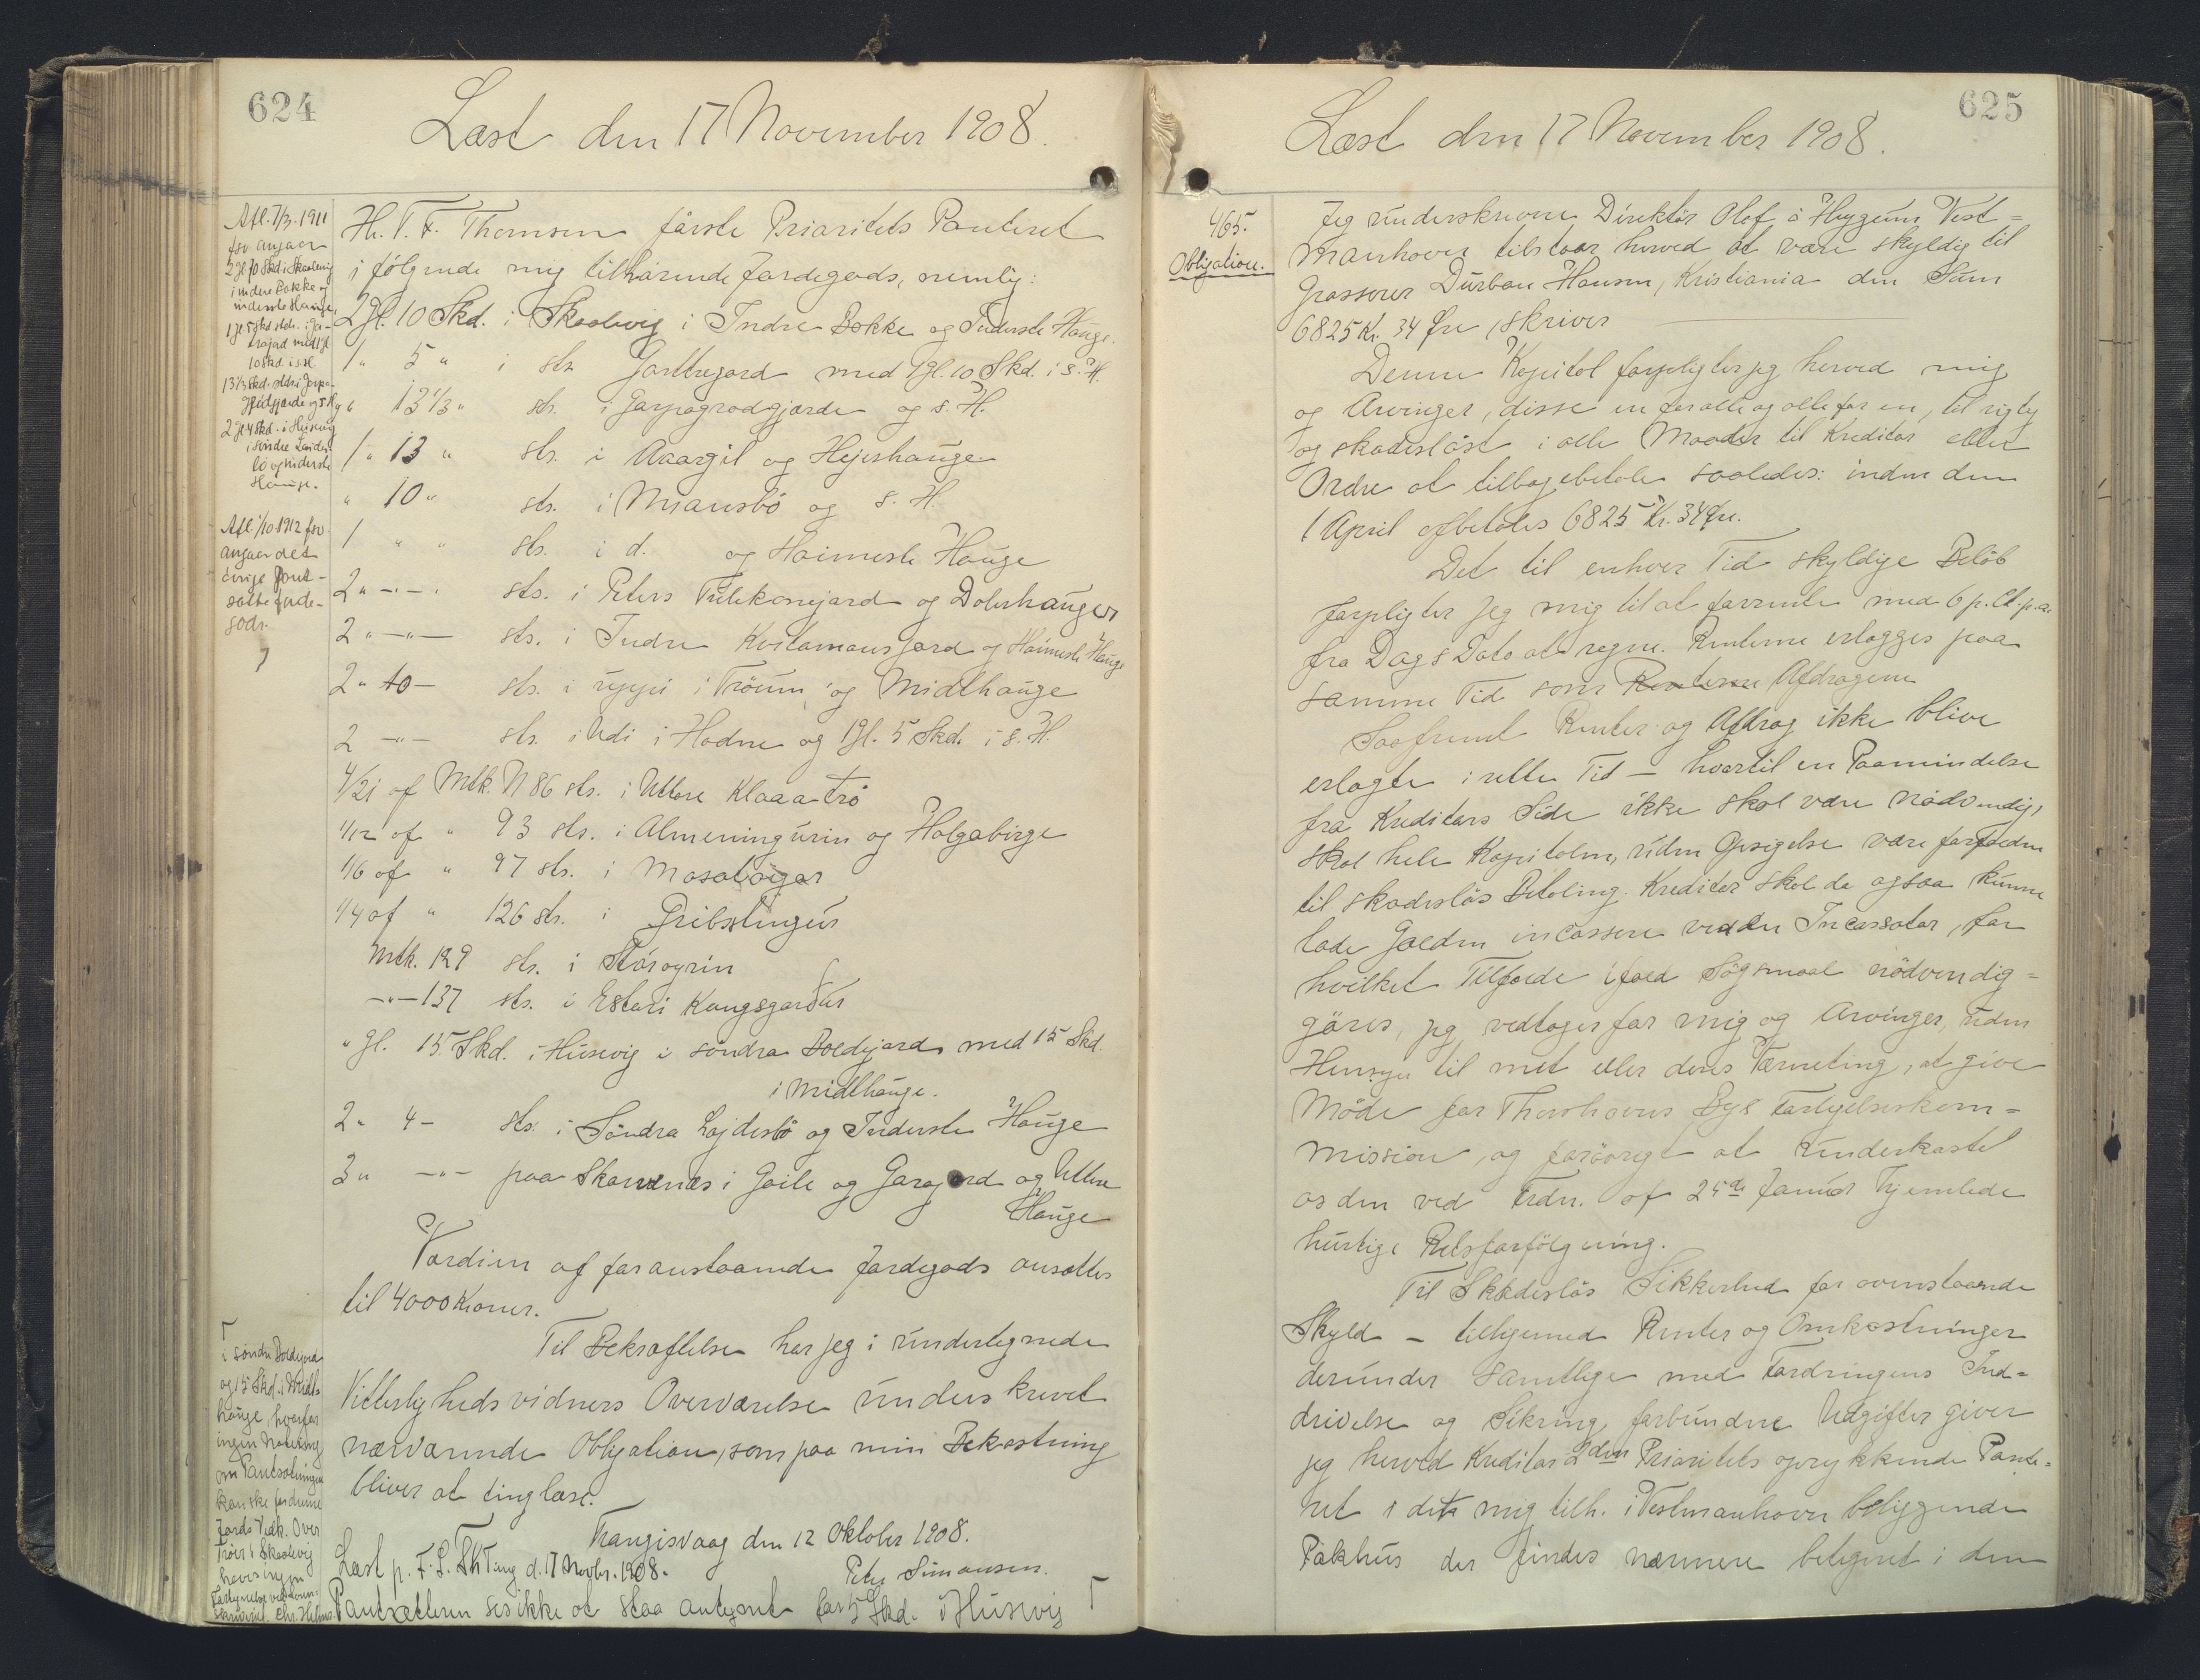 624
Læst den 17 November 1908.
Afl. 7/3. 1911
fsv angaar
2 gl 10 Skd i Skaalevig
i indre Bakke og
inderste Hauge,
1 gl 5 Skd sds. i Ja-
10 Skd i s. H.
13 1/3 Skd.
2 gl 4 Skd. i Husevig
i söndre
og inderste
Hauge.
Afl. 1/10 1912 fsv.
angaar det
övrige pant-
satte jorde-
gods.
Hr. T. F. Thomsen förste Prioritets Panteret
i følgende mig tilhörende Jordegods, nemlig:
2 gl. 10 Skd. i Skaalevig i Indre Bakke og Inderste Hauge.
1 " 5 " i sts. med 1 gl. 10 Skd. i s. H.
" " 13 1/3 " sts. i og s. H.
1 " 13 " sts. i Aaargil og Hejeshauge
" 10 " sts. i Miansbö og s. H.
1 " " sts. i d. og Haimeste Hauge
2 " -"- sts. i Peters og Dalshauger
2 " -"- sts. i Indre og Haimeste Hauge
2 " 10 - sts. i uppi i Tröum og Midlhauge
2 -"- sts. i Udi i Hadne og 1 gl. 5 Skd. i s. H.
4/21 af Mtk. N 86 sts. i Uttare Klaaatrö
1/12 af " 93 sts. i Almeningurin og Halgabirge
1/6 af " 97 sts. i
1/4 af " 126 sts. i Gribstingur
Mtk. 129 sts. i Stóroyrin
-"- 137 sts. i Estari Kongsgarður
" gl. 15 Skd. i Husevig i söndra Boldejard med 15 Skd.
i Midlhauge.
2 " 4 - sts. i Söndra Lajdesbö og Inderste Hauge
3 " -"- paa Skarvenæs i Gaile og Garajord og Uttere
Hauge
Værdien af foranstaaende Jordegods ansættes
til 4000 Kroner.
Til Bekræftelse har jeg i undertegnede
Vitterlighedsvidners Overværelse underskrevet
nærværende Obligation, som paa min Bekostning
bliver at tinglæse.
Trangisvaag den 12 Oktober 1908.
Peter Simonsen.
Læst p. F. L. Th Ting d. 17 Novbr. 1908.
Pantsætteren ses ikke at staa antegnet for 15 Skd. i Husevig Γ
Γ
i söndre Boldejord
og 15 Skd. i Midl-
hauge, hvorfor
ingen Notering
om Pantsætningen
kan ske for denne
Jords Vedk. Over
Trőer i Skaalevig
haves ingen
Chr. Helms.
625
Læst den 17 November 1908.
465.
Obligation.
Jeg underskrevne Direktör Olof á Heygum Vest=
manhavn tilstaar herved at være skyldig til
Grosserer Durban Hansen, Kristiania den Sum
6825 Kr. 34 Øre, skriver
Denne Kapital forpligter jeg herved mig
og Arvinger, disse en for alle og alle for en, til rigtig
og skadeslöst i alle Maader til Kreditor eller
Ordre at tilbagebetale saaledes: inden den
1 April afbetales 6825 Kr. 34 Øre.
Det til enhver Tid skyldige Belöb
forpligter jeg mig til at forrente med 6 p. Ct. p. a.
fra Dags Dato at regne. Renterne erlægges paa
samme Tid som Renterne Afdragene
Saafremt Renter og Afdrag ikke blive
erlagte i rette Tid - hvortil en Paamindelse
fra Kreditors Side ikke skal være nödvendig,
skal hele Kapitalen, uden Opsigelse være forfalden
til skadeslös Betaling. Kreditor skal da ogsaa kunne
lade Gælden incassere ved en Incassator, for
hvilket Tilfælde ifald Sögsmaal nödvendig=
göres, jeg vedtager for mig og Arvinger, uden
Hensyn til mit eller deres Værneting, at give
Möde for Thorshavns Bys Forligelseskom=
mission, og forövrigt at underkaste
os den ved Frdn. af 25de Januar hjemlede
hurtige Retsforfölgning.
Til Skadeslös Sikkerhed for ovenstaaende
Skyld - tilligemed Renter og Omkostninger
derunder samtlige med Fordringens Ind=
drivelse og Sikring forbundne Udgifter giver
jeg herved Kreditor 2den Prioritets oprykkende Pante=
ret i det mig tilh. i Vestmanhavn beliggende
Pakhus der findes nærmere betegnet i den